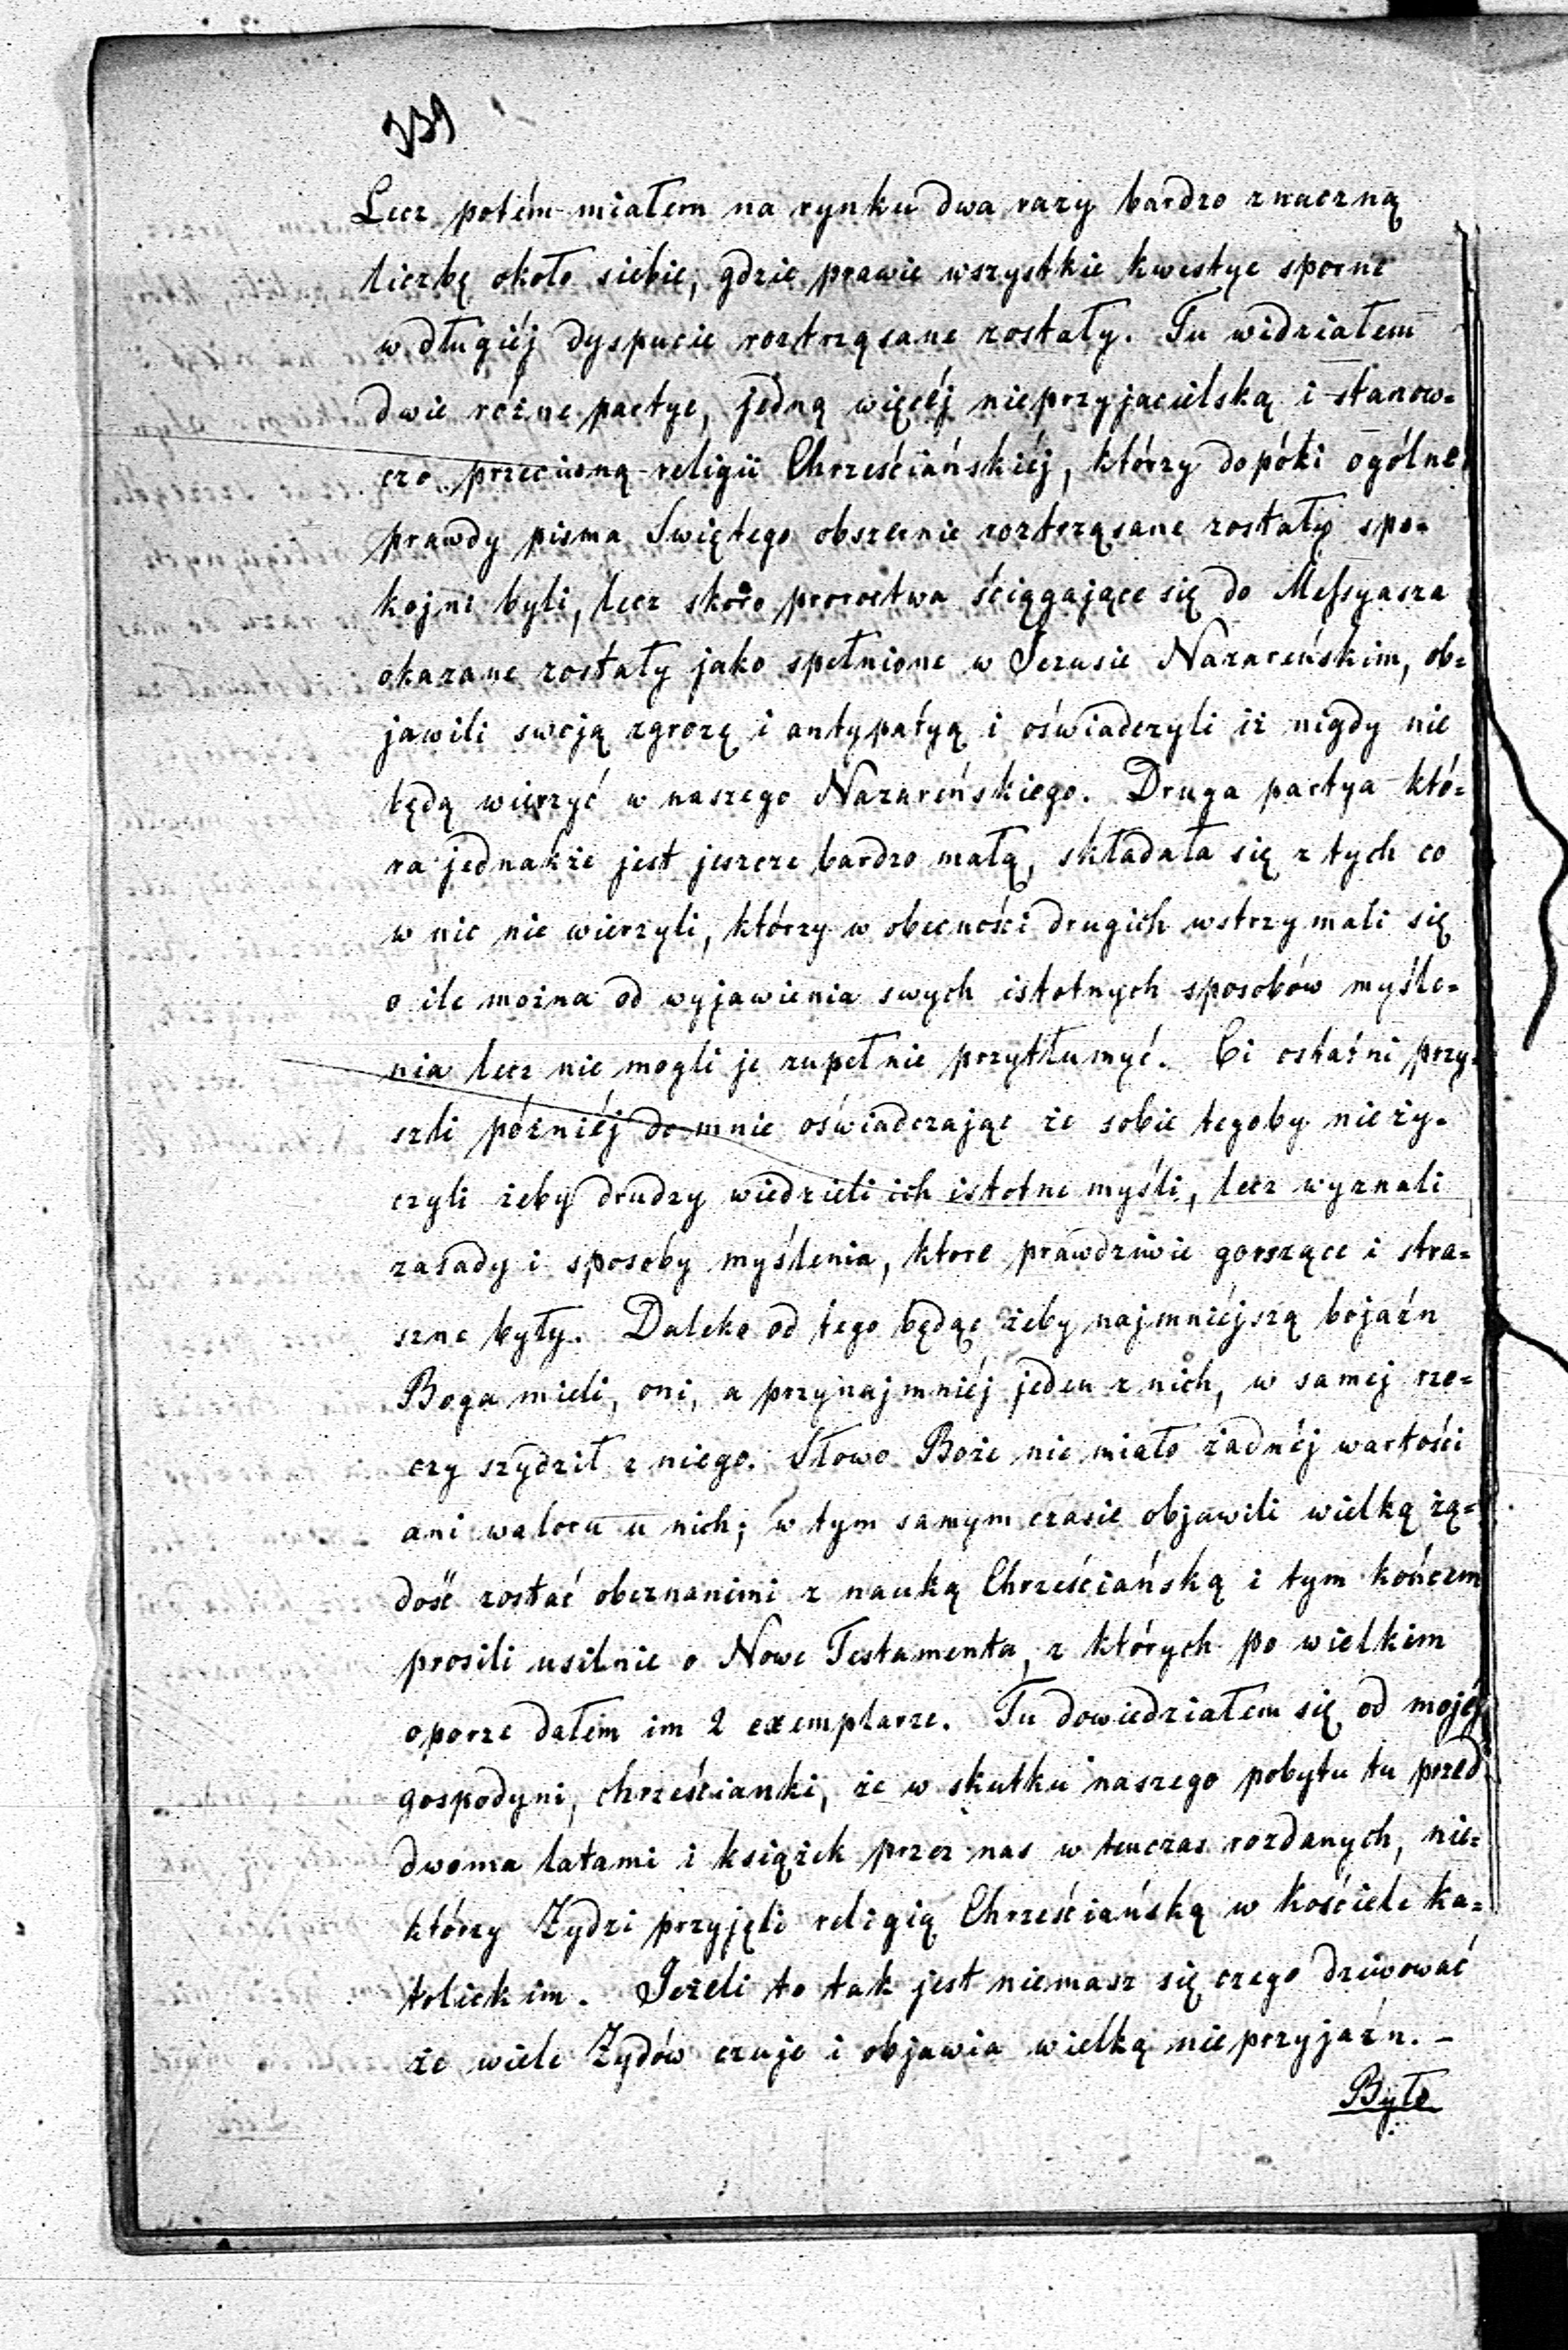 339
Lecz potém miałem na rynku dwa razy bardzo znaczną
liczbę około siebie, gdzie prawie wszystkie kwestye sporne
w długiéj dyspucie roztrząsane zostały. Tu widziałem
dwie różne partye, jedną więcéj nieprzyjacielską i stanow-
czo przeciwną religii Chrześciańskiéj, którzy dopóki ogólne
prawdy pisma Swiętego obszernie roztrząsane zostały spo-
kojni byli, lecz skoro proroctwa ściągające się do Messyasza
okazane zostały jako spełnione w Jezusie Nazareńskim, ob-
jawili swoją zgrozę i antypatyą i oświadczyli iż nigdy nie
będą wierzyć w naszego Nazareńskiego. Druga partya któ-
ra jednakże jest jeszcze bardzo małą, składała się z tych co
w nic nie wierzyli, którzy w obecności drugich wstrzymali się
o ile można od wyjawienia swych istotnych sposobów myśle-
nia lecz nie mogli je zupełnie przytłumyć. Ci ostatni przy-
szli późniéj do mnie oświadczając że sobie tegoby nie ży-
czyli żeby drudzy wiedzieli ich istotne myśli, lecz wyznali
zasady i sposoby myślenia, ktore prawdziwie gorszące i stra-
szne były. Daleko od tego będąc żeby najmniéjszą bojaźn
Boga mieli, oni, a przynajmniéj jeden z nich, w samej rze-
czy szydził z niego. Słowo Boże nie miało żadnéj wartości
ani waloru u nich; w tym samym czasie objawili wielką żą-
dość zostać obeznanimi z nauką Chrześciańską i tym końcem
prosili usilnie o Nowe Testamenta, z których po wielkim
oporze dałem im 2 exemplarze. Tu dowiedziałem się od mojéj
gospodyni, chrześcianki, że w skutku naszego pobytu tu przed
dwoma latami i książek przez nas w tenczas rozdanych, nie-
którzy Żydzi przyjęli religią Chrześciańską w kościele ka-
tolickim. Jeżeli to tak jest niemasz się czego dziwować
że wiele Żydów czuje i objawia wielką nieprzyjaźn. -
Było